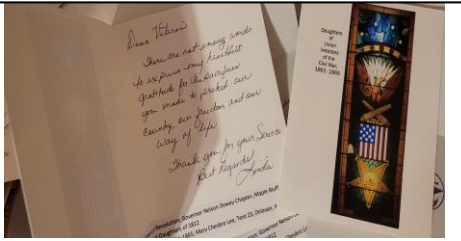 Dear Veteran
There are not enough words
to express my heartfelt
gratitude for the sacrifices
you made to protect our
country, our freedom and our
way of life
Thank you for your Service
Best Regards!
Linda
Revolution, Governor Nelson Dewey Chapter, Maple Bluff
Daughters of 1812
1865, Mary Chesbro Lee, Tent 23, Delavan,
Daughters
of
Union
Veterans
of the
Civil War,
1861-1865